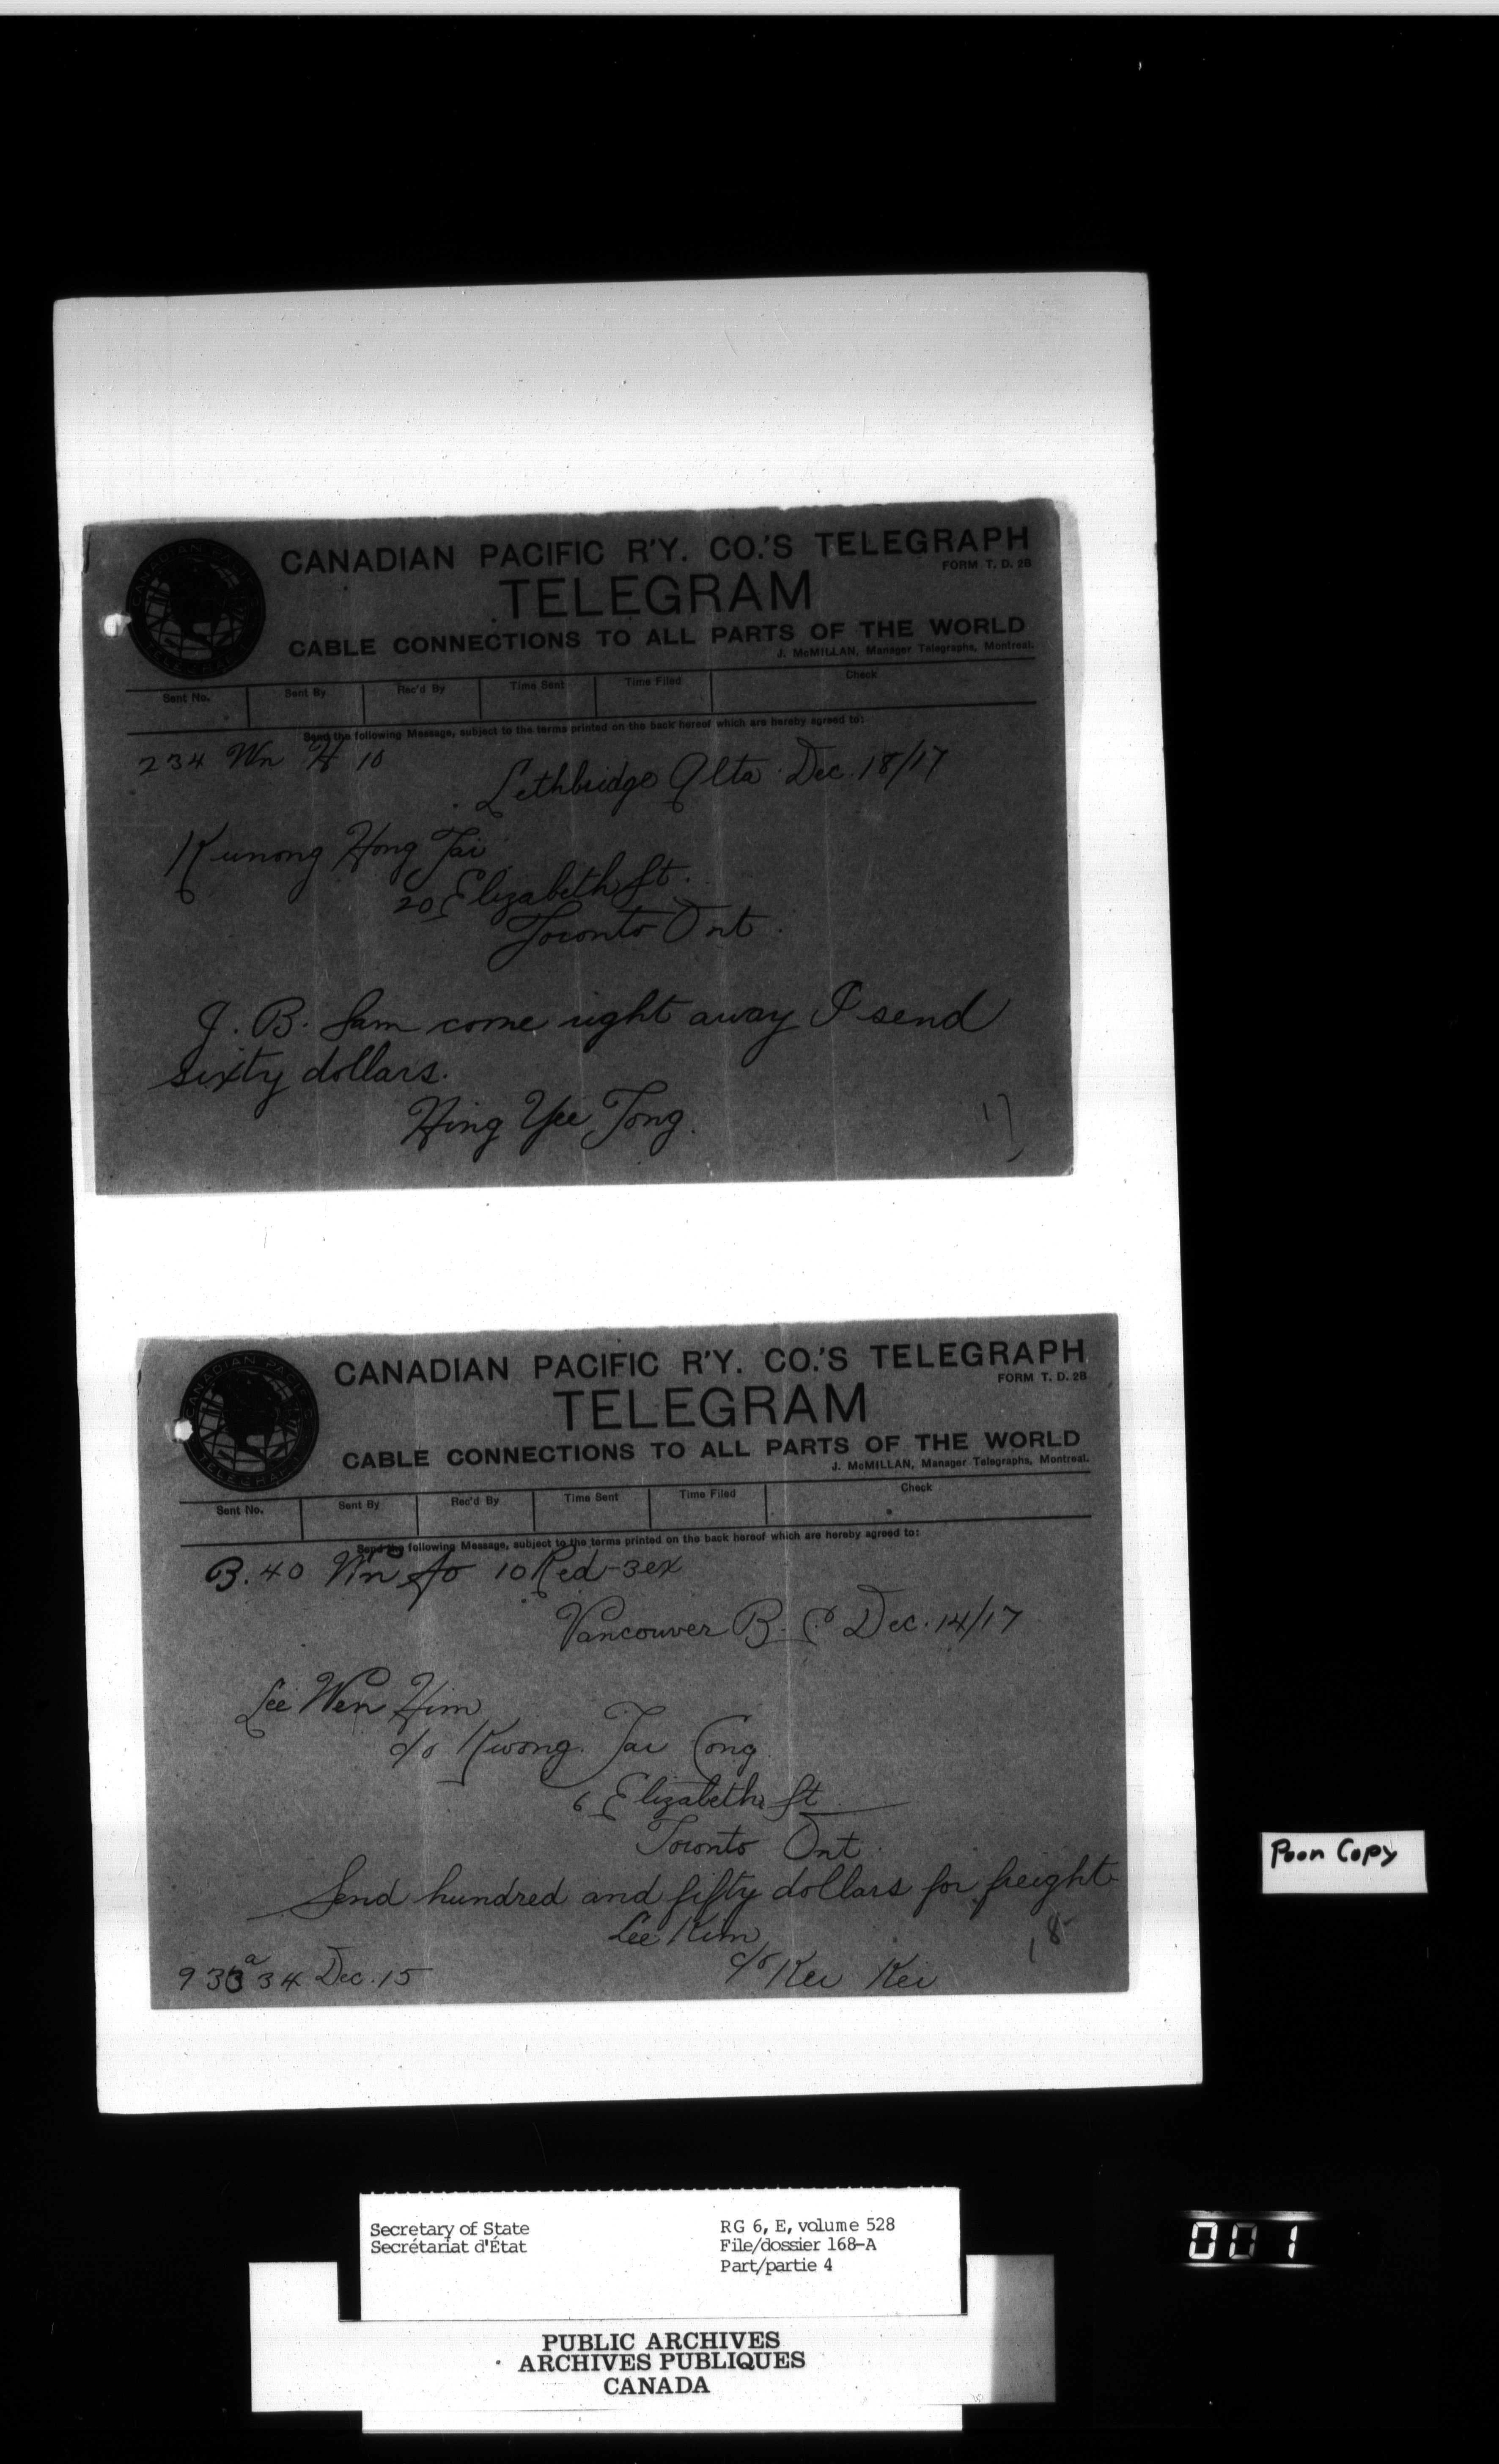 CANADIAN PACIFIC R'Y. CO.'S TELEGRAPH
FORM T. D. 2B
TELEGRAM
CABLE CONNECTIONS TO ALL PARTS OF THE WORLD
J. McMILLAN, Manager Telegraphs, Montreal.
Sent No. Sent By Rec'd By Time Sent Time Filed Check
Send the following Message, subject to the terms printed on the back hereof which are hereby agreed to:
234 Wn H 10
Lethbridge Alta Dec. 18/17
Kunong Hong Tai
20 Elizabeth St.
Toronto Ont.
J. B. Sam come right away I send
sixty dollars.
Hing Yee Tong.
17
CANADIAN PACIFIC R'Y. CO.'S TELEGRAPH
FORM T. D. 2B
TELEGRAM
CABLE CONNECTIONS TO ALL PARTS OF THE WORLD
J. McMILLAN, Manager Telegraphs, Montreal.
Sent No. Sent By Rec'd By Time Sent Time Filed Check
Send the following Message, subject to the terms printed on the back hereof which are hereby agreed to:
B. 40 Wn 10 Red-3ex
Vancouver B. C. Dec. 14/17
Lee Wen Him
c/o Kwong Tai Cong
6 Elizabeth St
Toronto Ont.
Send hundred and fifty dollars for freight
Lee Kim
18
c/o Kei Kei
933a 34 Dec. 15
Poor Copy
Secretary of State
Secrétariat d'État
RG 6, E, volume 528
File/dossier 168-A
Part/partie 4
001
PUBLIC ARCHIVES
ARCHIVES PUBLIQUES
CANADA